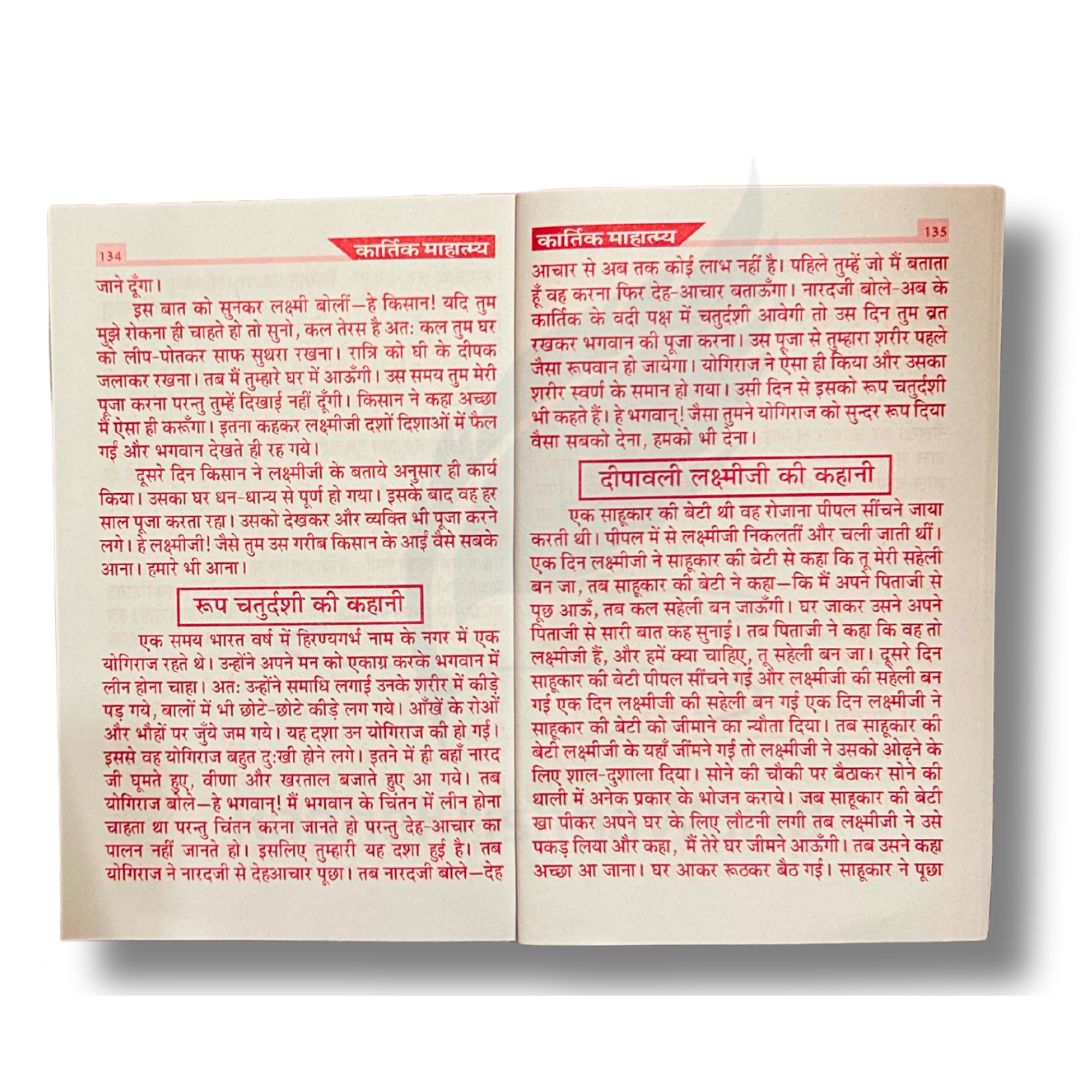 134
कार्तिक माहात्म्य
जाने दूँगा।
इस बात को सुनकर लक्ष्मी बोलीं—हे किसान! यदि तुम
मुझे रोकना ही चाहते हो तो सुनो, कल तेरस है अतः कल तुम घर
को लीप-पोतकर साफ सुथरा रखना। रात्रि को घी के दीपक
जलाकर रखना। तब मैं तुम्हारे घर में आऊँगी। उस समय तुम मेरी
पूजा करना परन्तु तुम्हें दिखाई नहीं दूँगी। किसान ने कहा अच्छा
मैं ऐसा ही करूँगा। इतना कहकर लक्ष्मीजी दशों दिशाओं में फैल
गई और भगवान देखते ही रह गये।
दूसरे दिन किसान ने लक्ष्मीजी के बताये अनुसार ही कार्य
किया। उसका घर धन-धान्य से पूर्ण हो गया। इसके बाद वह हर
साल पूजा करता रहा। उसको देखकर और व्यक्ति भी पूजा करने
लगे। हे लक्ष्मीजी! जैसे तुम उस गरीब किसान के आईं वैसे सबके
आना। हमारे भी आना।
रूप चतुर्दशी की कहानी
एक समय भारत वर्ष में हिरण्यगर्भ नाम के नगर में एक
योगिराज रहते थे। उन्होंने अपने मन को एकाग्र करके भगवान में
लीन होना चाहा। अतः उन्होंने समाधि लगाई उनके शरीर में कीड़े
पड़ गये, बालों में भी छोटे-छोटे कीड़े लग गये। आँखें के रोओं
और भौहों पर जुँये जम गये। यह दशा उन योगिराज की हो गई।
इससे वह योगिराज बहुत दुःखी होने लगे। इतने में ही वहाँ नारद
जी घूमते हुए, वीणा और खरताल बजाते हुए आ गये। तब
योगिराज बोले—हे भगवान्! मैं भगवान के चिंतन में लीन होना
चाहता था परन्तु चिंतन करना जानते हो परन्तु देह-आचार का
पालन नहीं जानते हो। इसलिए तुम्हारी यह दशा हुई है। तब
योगिराज ने नारदजी से देहआचार पूछा। तब नारदजी बोले—देह
कार्तिक माहात्म्य
135
आचार से अब तक कोई लाभ नहीं है। पहिले तुम्हें जो मैं बताता
हूँ वह करना फिर देह-आचार बताऊँगा। नारदजी बोले-अब के
कार्तिक के वदी पक्ष में चतुर्दशी आवेगी तो उस दिन तुम व्रत
रखकर भगवान की पूजा करना। उस पूजा से तुम्हारा शरीर पहले
जैसा रूपवान हो जायेगा। योगिराज ने ऐसा ही किया और उसका
शरीर स्वर्ण के समान हो गया। उसी दिन से इसको रूप चतुर्दशी
भी कहते हैं। हे भगवान्! जैसा तुमने योगिराज को सुन्दर रूप दिया
वैसा सबको देना, हमको भी देना।
दीपावली लक्ष्मीजी की कहानी
एक साहूकार की बेटी थी वह रोजाना पीपल सींचने जाया
करती थी। पीपल में से लक्ष्मीजी निकलतीं और चली जाती थीं।
एक दिन लक्ष्मीजी ने साहूकार की बेटी से कहा कि तू मेरी सहेली
बन जा, तब साहूकार की बेटी ने कहा—कि मैं अपने पिताजी से
पूछ आऊँ, तब कल सहेली बन जाऊँगी। घर जाकर उसने अपने
पिताजी से सारी बात कह सुनाई। तब पिताजी ने कहा कि वह तो
लक्ष्मीजी हैं, और हमें क्या चाहिए, तू सहेली बन जा। दूसरे दिन
साहूकार की बेटी पीपल सींचने गई और लक्ष्मीजी की सहेली बन
गई एक दिन लक्ष्मीजी की सहेली बन गई एक दिन लक्ष्मीजी ने
साहूकार की बेटी को जीमाने का न्यौता दिया। तब साहूकार की
बेटी लक्ष्मीजी के यहाँ जींमने गई तो लक्ष्मीजी ने उसको ओढ़ने के
लिए शाल-दुशाला दिया। सोने की चौकी पर बैठाकर सोने की
थाली में अनेक प्रकार के भोजन कराये। जब साहूकार की बेटी
खा पीकर अपने घर के लिए लौटनी लगी तब लक्ष्मीजी ने उसे
पकड़ लिया और कहा, मैं तेरे घर जीमने आऊँगी। तब उसने कहा
अच्छा आ जाना। घर आकर रूठकर बैठ गई। साहूकार ने पूछा